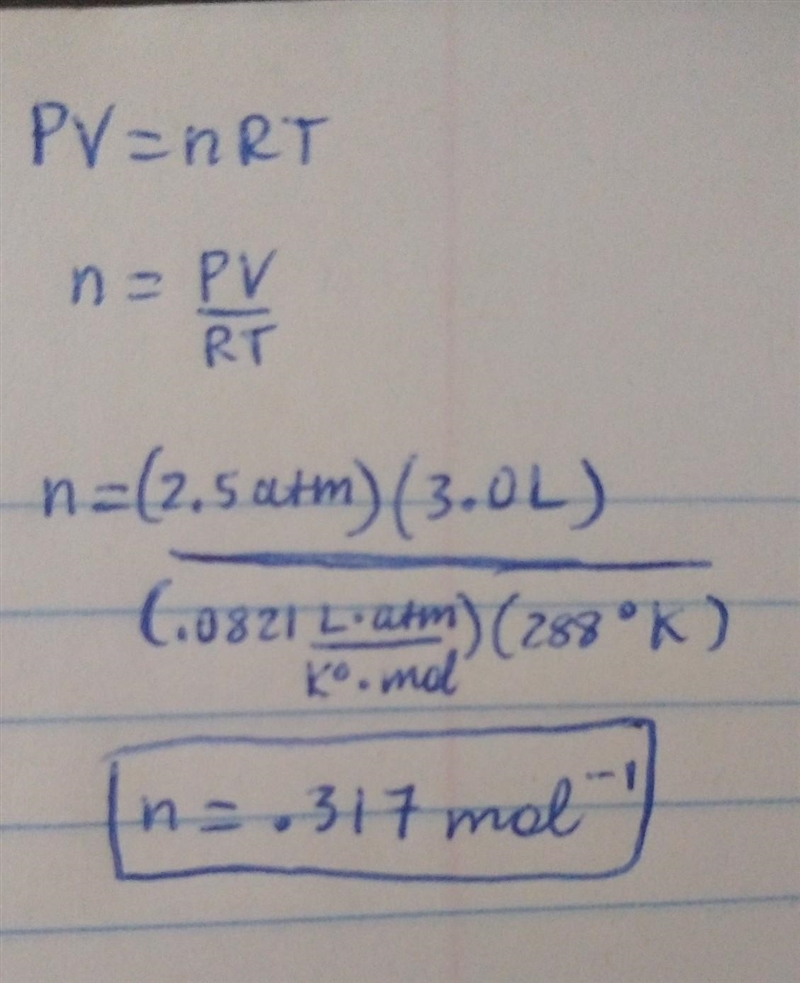 PV = nRT
n = PV
RT
n = (2.5 atm)(3.0L)
(.0821 L·atm)(288°K)
K°·mol
n = .317 mol⁻¹